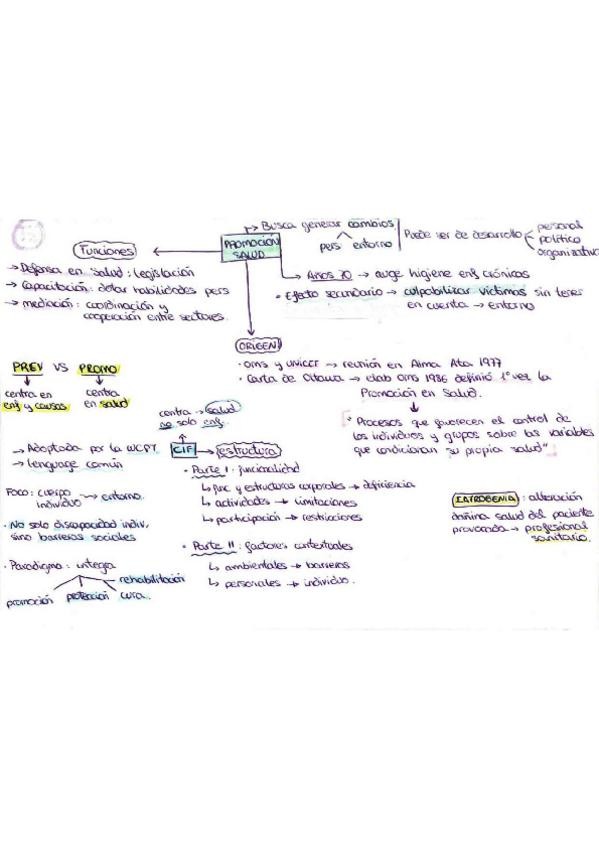 → Busca generar cambios
pers entorno
Puede ser de desarrollo
personal
político
organizativo
PROMOCIÓN
SALUD
Funciones
→ Defensa en Salud: legislación
→ Capacitación: dotar habilidades pers
→ mediación: coordinación y
cooperación entre sectores.
→ Años 70 → auge higiene enf crónicas
• Efecto secundario → culpabilizar víctimas sin tener
en cuenta → entorno
ORIGEN
• OMS y UNICEF → reunión en Alma Ata 1977
• Carta de Ottawa → elab OMS 1986 definió 1ª vez la
Promoción en Salud.
"Procesos que favorecen el control de
los individuos y grupos sobre las variables
que condicionan su propia salud"
PREV VS PROMO
centra en
enf y causas
centra
en salud
centra → salud
no solo enf.
CIF → estructura
→ Adoptada por la WCPT
→ Lenguaje común
Foco: cuerpo
individuo → entorno.
• No solo discapacidad indiv,
sino barreras sociales
• Paradigma: integra
promoción protección cura. rehabilitación
• Parte I: funcionalidad
↳ func y estructuras corporales → deficiencia
↳ actividades → limitaciones
↳ participación → restricciones
• Parte II: factores contextuales
↳ ambientales → barreras
↳ personales → individuo.
IATROGENIA: alteración
dañina salud del paciente
provocada → profesional
sanitario.